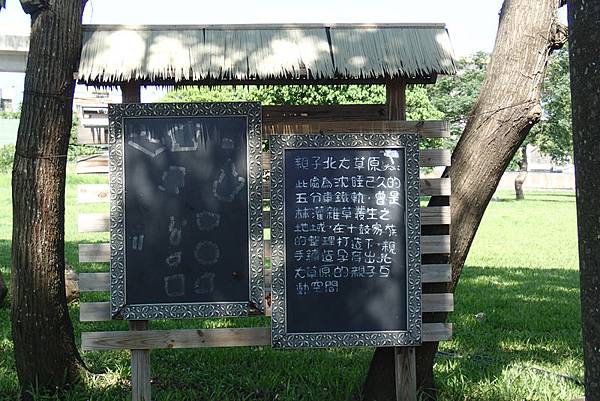 親子北大草原
此處為沈旺已久的
五分車鐵軌,曾是
林灌雜草叢生之
地域,在十鼓家族
的整理打造下,親
手鑄造孕育出北
大草原的親子互
動空間